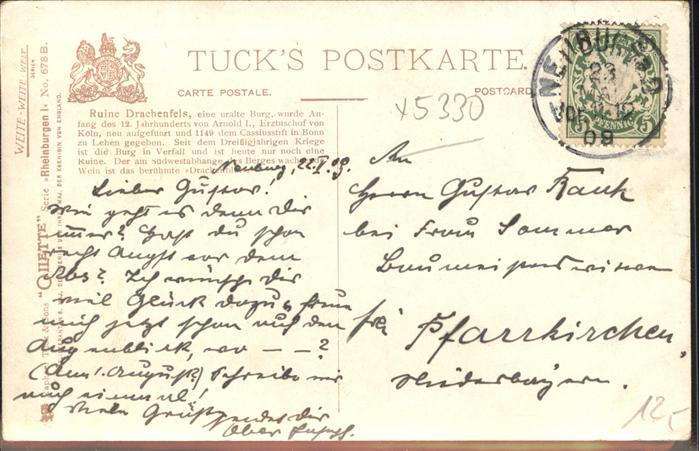 TUCK'S POSTKARTE.
CARTE POSTALE.
POSTCARD
WEITE-WEITE WELT
SERIEN
"OILETTE" Serie »Rheinburgen I« No. 678 B.
Ruine Drachenfels, eine uralte Burg, wurde An-
fang des 12. Jahrhunderts von Arnold I., Erzbischof von
Köln, neu aufgeführt und 1149 dem Cassiusstift in Bonn
zu Lehen gegeben. Seit dem Dreißigjährigen Kriege
ist die Burg in Verfall und ist heute nur noch eine
Ruine. Der am Südwestabhange des Berges wachsende
Wein ist das berühmte »Drachenbl
x5330
NEUBURG
23
09
PFENNIG
5
Neuburg, 22.
Lieber Gustav!
Wie geht es denn dir
immer? Hast du schon
recht Angst vor dem
Abs? Ich wünsche dir
viel Glück dazu u. freue
mich jetzt schon auf den
Augenblick, wo — — ?
(Am 1. August) Schreibe mir
noch einmal!
Viele Grüße sendet dir
An
Herrn Gustav
bei Frau Sommer
Pfarrkirchen,
Niederbayern.
12,-